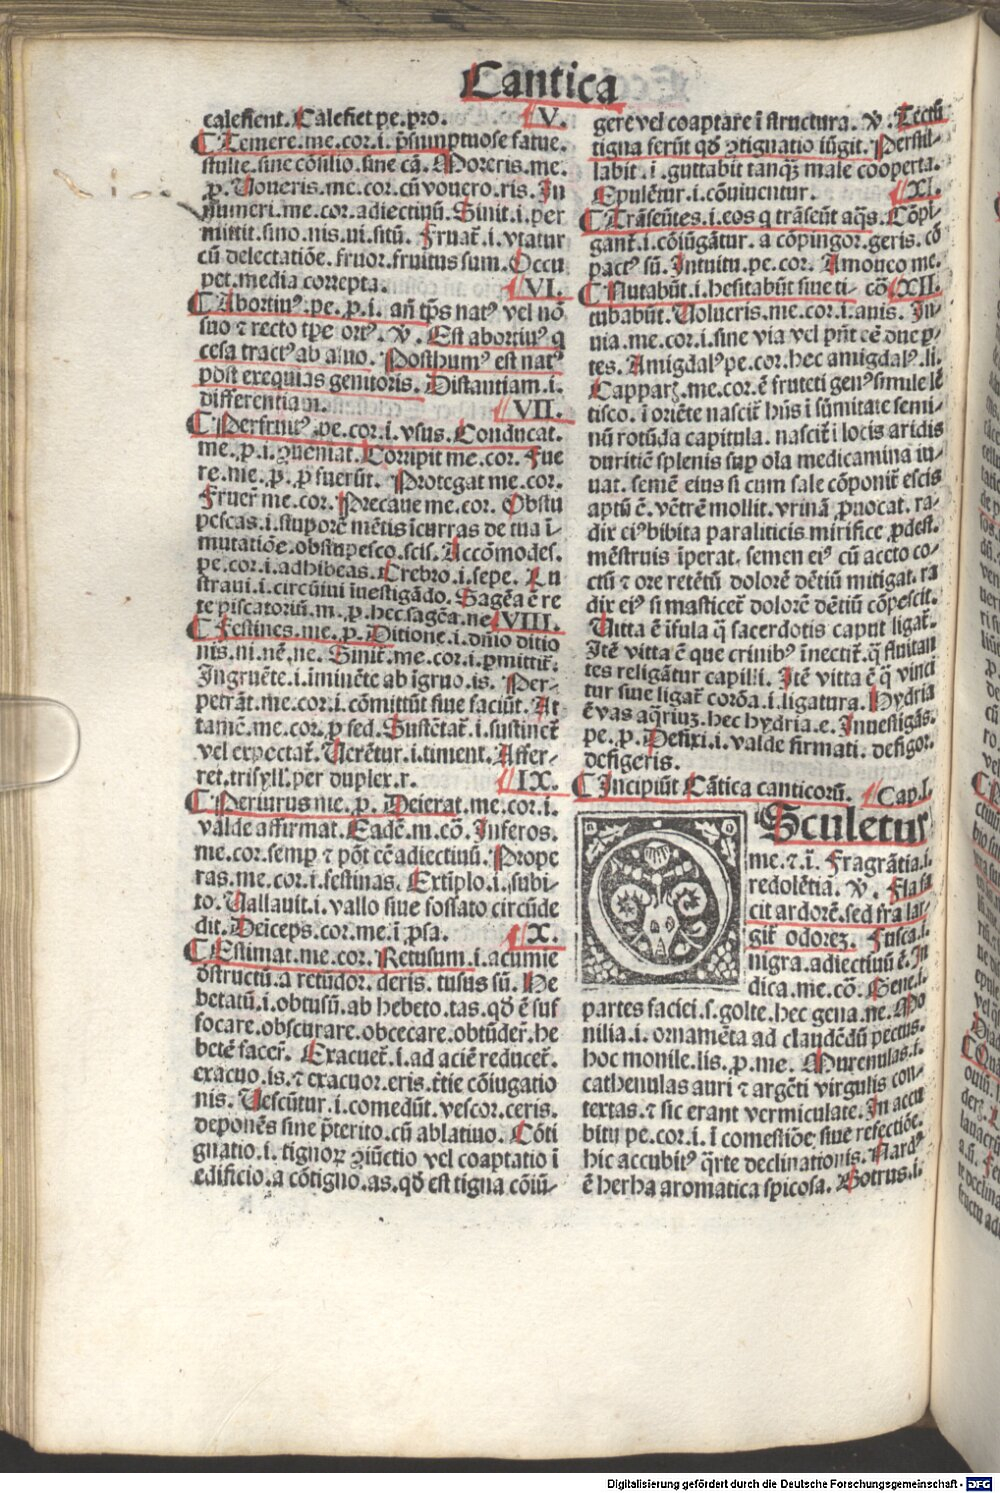 Cantica
calefient. Calefiet pe. pro. V.
Temere. me. cor. i. p̃sumptuose fatue.
stulte. sine cõsilio. sine cã. Moreris. me.
ꝓ. Voueris. me. cor. cũ vouero. ris. In
numeri. me. cor. adiectiuũ. Sinit. i. per
mittit. sino. nis. ui. sitũ. Fruat᷑. i. vtatur
cũ delectatiõe. fruor. fruitus sum. Occu
pet. media correpta. VI.
Abortiuꝰ. pe. ꝓ. i. añ tp̃s natꝰ vel nõ
suo ⁊ recto tpe ortꝰ. ꝟ. Est abortiuꝰ q
cesa tractꝰ ab aluo. Posthumꝰ est natꝰ
post exequias genitoris. Distantiam. i.
differentiam. VII.
Perfruitꝰ. pe. cor. i. vsus. Conducat.
me. ꝓ. i. ꝯueniat. Corripit me. cor. Fue
re. me. ꝓ. ꝓ fuerũt. Protegat me. cor.
Fruer᷑ me. cor. Precaue me. cor. Obstu
pescas. i. stuporẽ mẽtis ĩcurras de tua ĩ-
mutatiõe. obstupesco. scis. Accõmodes.
pe. cor. i. adhibeas. Crebro. i. sepe. Lu
straui. i. circũiui ĩuestigãdo. Sagẽa ẽ re
te piscatoriũ. m. ꝓ. hec sagẽa. ne VIII.
Festines. me. ꝓ. Ditione. i. dñio ditio
nis. ni. nẽ. ne. Sinit᷑. me. cor. i. ꝑmittit᷑.
Ingruẽte. i. iminẽte ab ĩgruo. is. Per-
petrãt. me. cor. i. cõmittũt siue faciũt. At
tamẽ. me. cor. ꝓ sed. Sustẽtat᷑. i. sustinet᷑
vel expectat᷑. Uerẽtur. i. timent. Affer-
ret. trisyll'. per duplex. r. IX.
Periurus me. ꝓ. Deierat. me. cor. i.
valde affirmat. Eadẽ. m. cõ. Inferos.
me. cor. semꝑ ⁊ põt eẽ adiectiuũ. Prope
ras. me. cor. i. festinas. Extĩplo. i. subi-
to. Uallauit. i. vallo siue fossato circũde
dit. Deĩceps. cor. me. ĩ ꝓsa. X.
Estimat. me. cor. Retusum. i. acumĩe
obstructũ. a retũdor. deris. tusus sũ. He
betatũ. i. obtusũ. ab hebeto. tas. qđ ẽ suf
focare. obscurare. obcecare. obtũder᷑. he
betẽ facer᷑. Exacuet᷑. i. ad aciẽ reducet᷑.
exacuo. is. ⁊ exacuor. eris. t̃tie cõiugatio
nis. Uescũtur. i. comedũt. vescor. ceris.
deponẽs sine p̃terito. cũ ablatiuo. Cõti
gnatio. i. tignoꝝ ꝯiũctio vel coaptatio ĩ
edificio. a cõtigno. as. qđ est tigna cõiũ-
gere vel coaptare ĩ structura. ꝟ. Tectũ
tigna ferũt qđ ꝯtignatio iũgit. Perstil-
labit. i. guttabit tanq̃ male cooperta.
Epulẽtur. i. cõuiuentur. XI.
Trãseũtes. i. eos q trãseũt aq̃s. Cõpi-
gant᷑. i. cõiũgãtur. a cõpingor. geris. cõ
pactꝰ sũ. Intuitu. pe. cor. Amoueo me.
Nutabũt. i. hesitabũt siue ti- cõ XII.
tubabũt. Uolucris. me. cor. i. auis. In-
uia. me. cor. i. sine via vel pñt eẽ due ꝑ-
tes. Amigdalꝰ pe. cor. hec amigdalꝰ. li.
Capparꝭ. me. cor. ẽ fruteti genꝰ simile lẽ
tisco. ĩ oriẽte nascit᷑ hñs ĩ sũmitate semi-
nũ rotũda capitula. nascit᷑ i locis aridis
duritiẽ splenis suꝑ oĩa medicamina iu-
uat. semẽ eius si cum sale cõponit᷑ escis
aptũ ẽ. vẽtrẽ mollit. vrinã ꝓuocat. ra-
dix eiꝰ bibita paraliticis mirifice ꝓdest.
mẽstruis ĩperat. semen eiꝰ cũ aceto co-
ctũ ⁊ ore retẽtũ dolorẽ dẽtiũ mitigat. ra
dix eiꝰ si masticet᷑ dolorẽ dẽtiũ cõpescit.
Uitta ẽ ĩfula q̃ sacerdotis caput ligat᷑.
Itẽ vitta ẽ que crinibꝰ ĩnectit᷑. q̃ fluitan
tes religãtur capilli. Itẽ vitta ẽ q̃ vinci
tur siue ligat᷑ corõa. i. ligatura. Hydria
ẽ vas aq̃riuꝫ. hec hydria. e. Inuestigãs.
pe. ꝓ. Defixi. i. valde firmati. defigor.
defigeris.
Incipiũt Cãtica canticorũ. Cap. I.
Osculetur
me. ⁊. ĩ. Fragrãtia. i.
redolẽtia. ꝟ. Flasa
cit ardorẽ. sed fra lar-
git᷑ odoreꝫ. Fusca. i.
nigra. adiectiuũ ẽ. In
dica. me. cõ. Gene. i.
partes faciei. s. golte. hec gena. ne. Mo
nilia. i. ornamẽta ad claudẽdũ pectus.
hoc monile. lis. ꝓ. me. Murenulas. i.
cathenulas auri ⁊ argẽti virgulis con-
textas. ⁊ sic erant vermiculate. In accu
bitu pe. cor. i. ĩ comestiõe siue refectiõe.
hic accubitꝰ q̃rte declinationis. Nardꝰ
ẽ herba aromatica spicosa. Botrus. i.
Digitalisierung gefördert durch die Deutsche Forschungsgemeinschaft - DFG